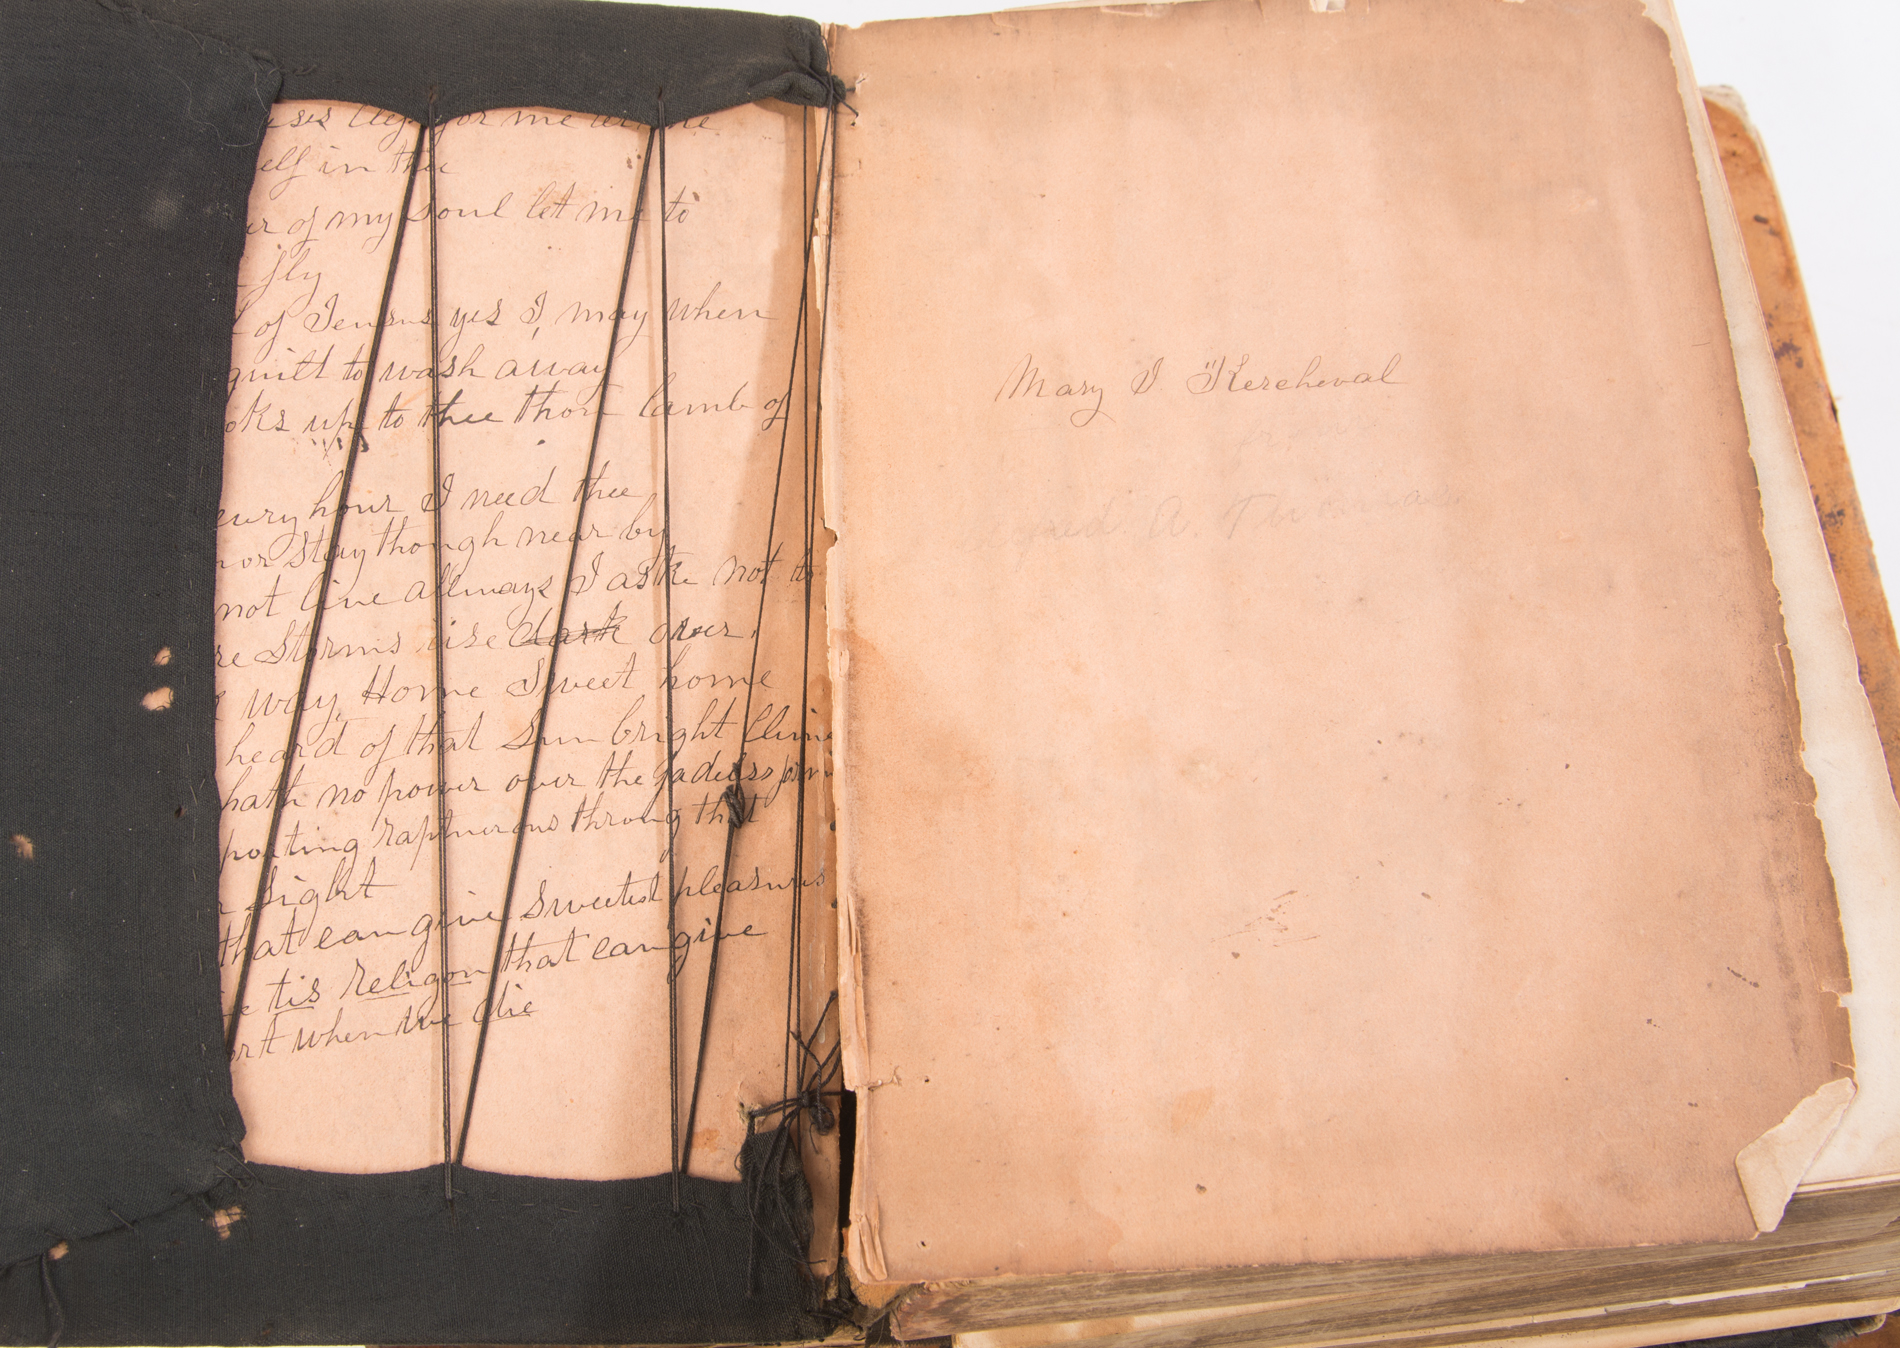 for me
elf in thee
of my soul let me to
fly
of Jensus yes I, may when
guilt to wash away
oks up to thee thou lamb of
every hour I need thee
nor stay though near by
not live allways I aske not to
re Storms rise dark over.
way, Home Sweet home
heard of that Sun bright Clime
hath no power over the fadeless
porting rapturous throug that
sight
that can give Sweetest pleasures
tis Religon that can give
ort when we die
Mary I. Kercheval
from
A.